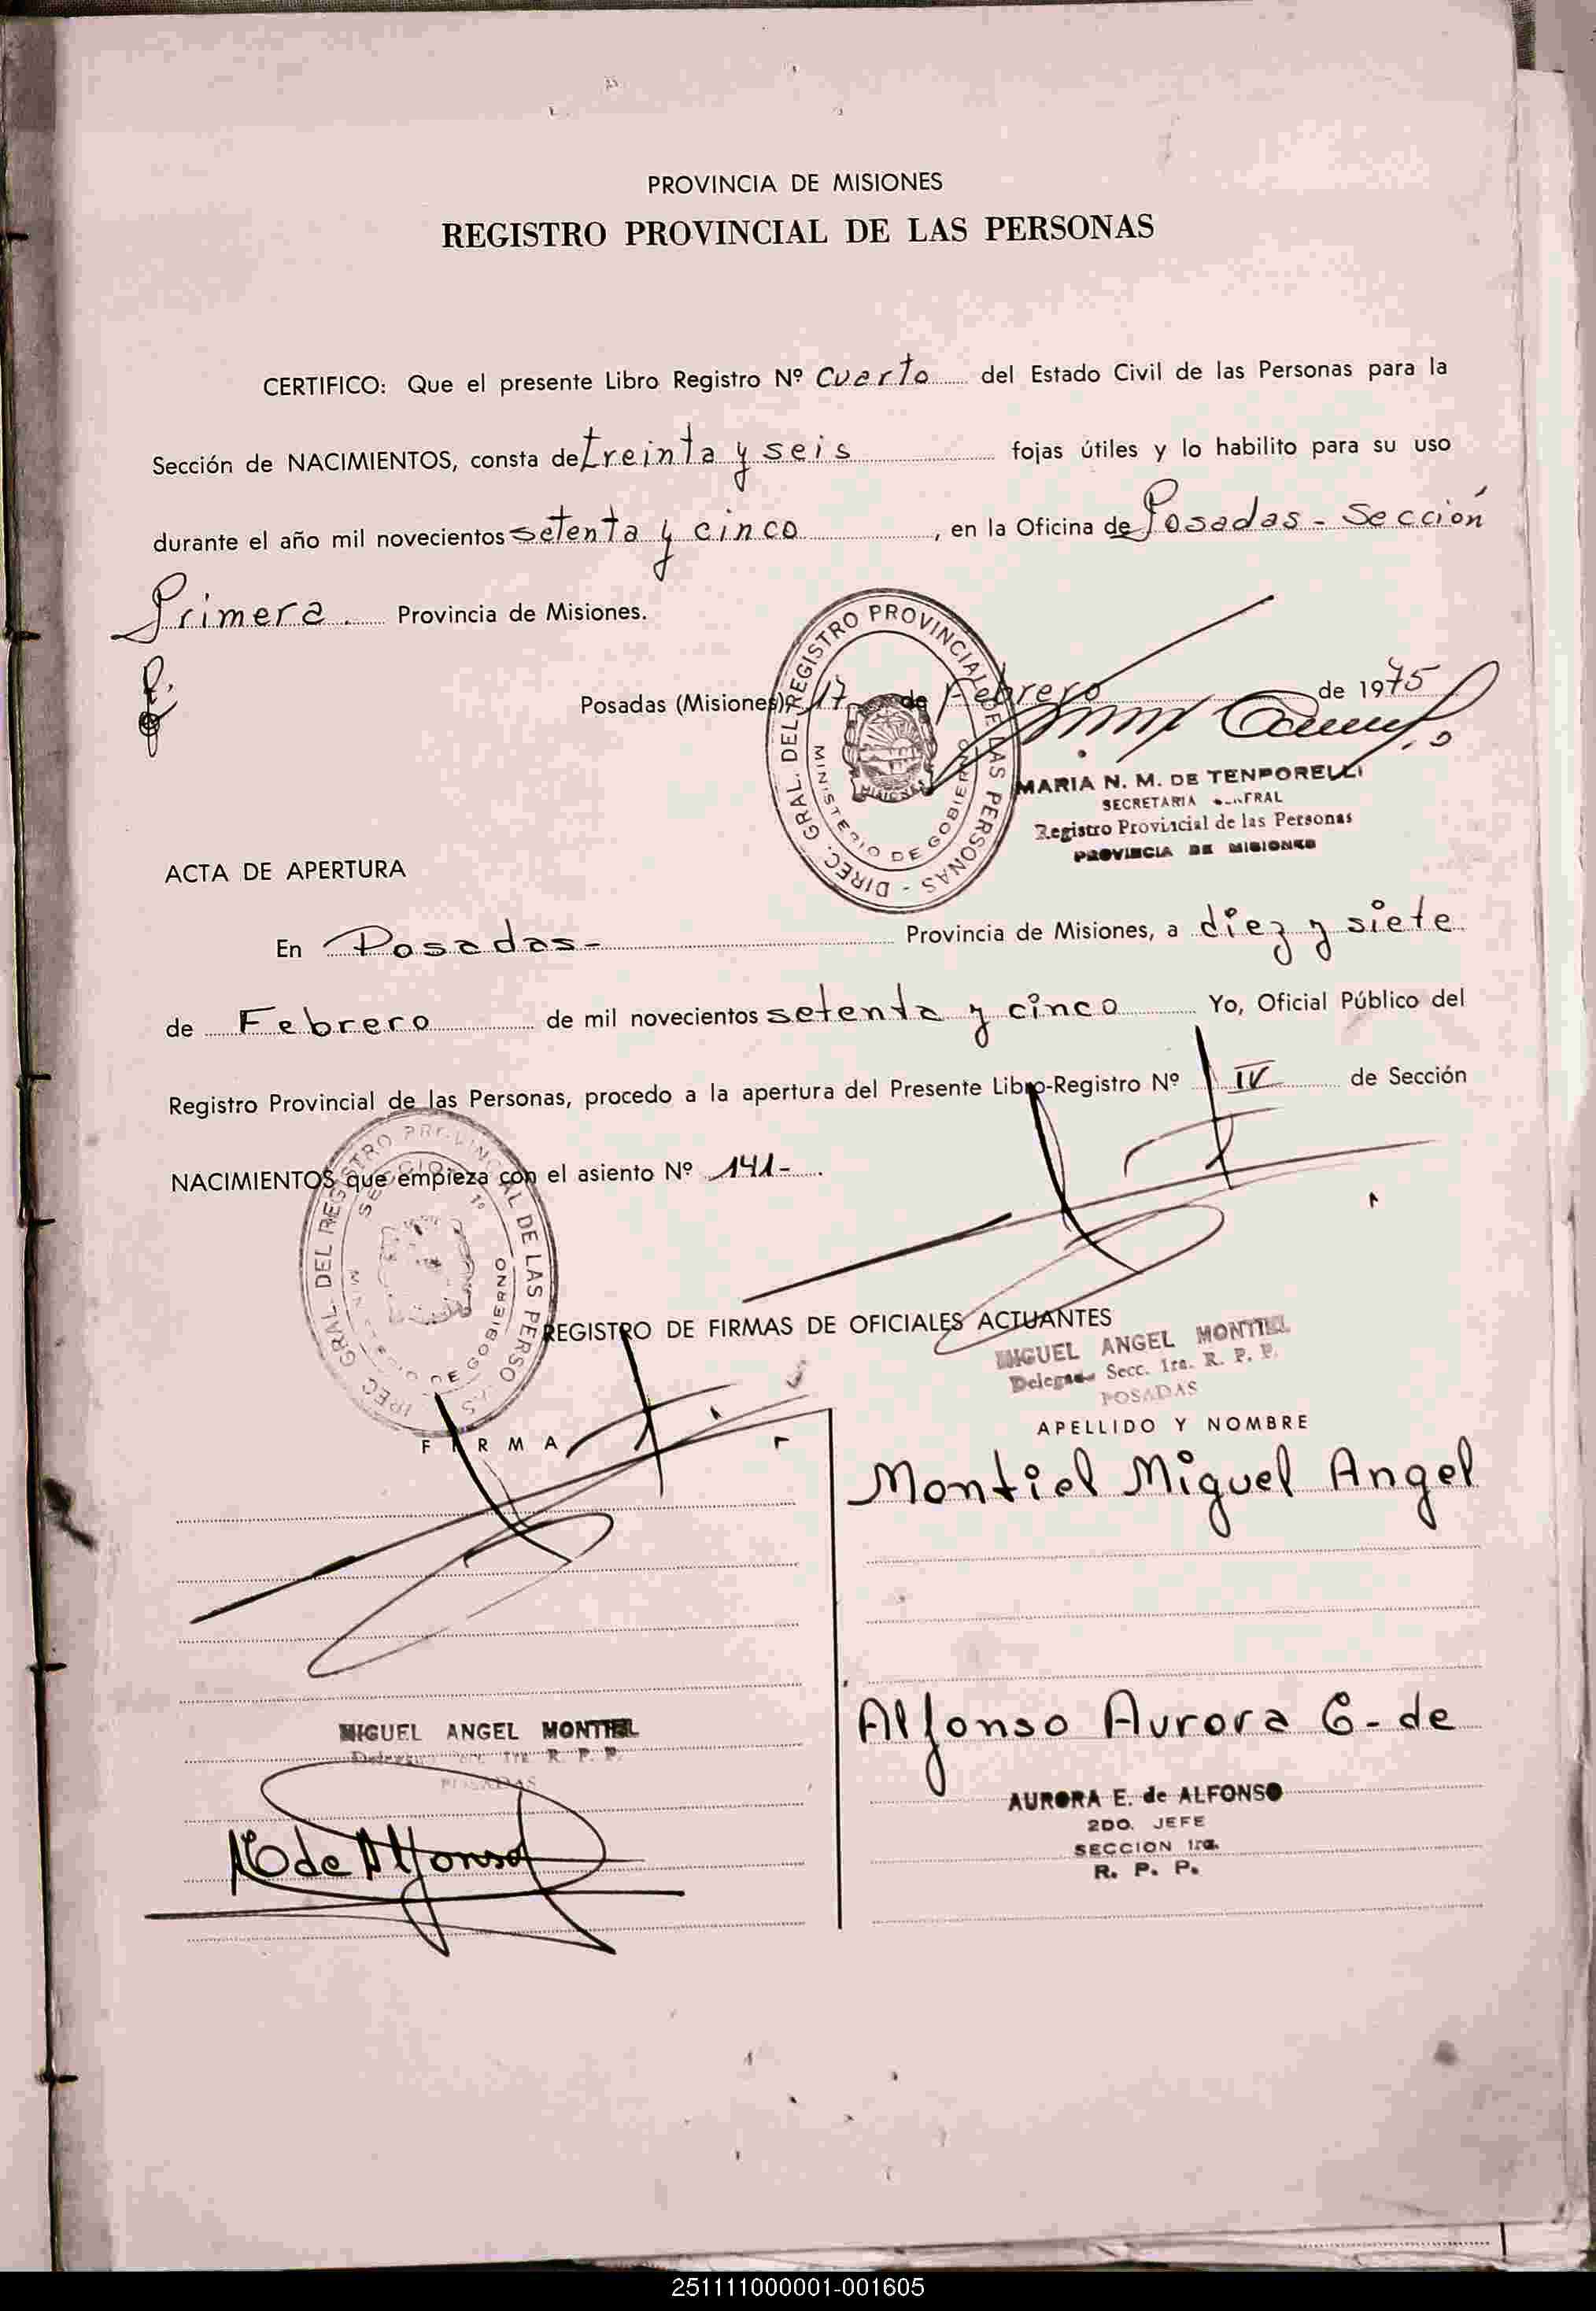 PROVINCIA DE MISIONES
REGISTRO PROVINCIAL DE LAS PERSONAS
CERTIFICO: Que el presente Libro Registro Nº Cuarto del Estado Civil de las Personas para la
Sección de NACIMIENTOS, consta de treinta y seis fojas útiles y lo habilito para su uso
durante el año mil novecientos setenta y cinco, en la Oficina de Posadas - Sección
Primera. Provincia de Misiones.
Posadas (Misiones), 17 de Febrero de 1975
DIREC. GRAL. DEL REGISTRO PROVINCIAL DE LAS PERSONAS -
MINISTERIO DE GOBIERNO
MISIONES
MARIA N. M. DE TENPORELLI
SECRETARIA
Registro Provincial de las Personas
PROVINCIA DE MISIONES
ACTA DE APERTURA
En Posadas- Provincia de Misiones, a diez y siete
de Febrero de mil novecientos setenta y cinco Yo, Oficial Público del
Registro Provincial de las Personas, procedo a la apertura del Presente Libro-Registro Nº IV de Sección
NACIMIENTOS que empieza con el asiento Nº 141-.
DIREC. GRAL. DEL REGISTRO PROVINCIAL DE LAS PERSONAS
SECCION 1º
MINISTERIO DE GOBIERNO
REGISTRO DE FIRMAS DE OFICIALES ACTUANTES
MIGUEL ANGEL MONTIEL
Delegado Secc. 1ra. R. P. P.
POSADAS
FIRMA
APELLIDO Y NOMBRE
Montiel Miguel Angel
MIGUEL ANGEL MONTIEL
R. P. P.
POSADAS
Alfonso Aurora E. de
AURORA E. de ALFONSO
2DO. JEFE
SECCION 1ra.
R. P. P.
AE de Alfonso
251111000001-001605